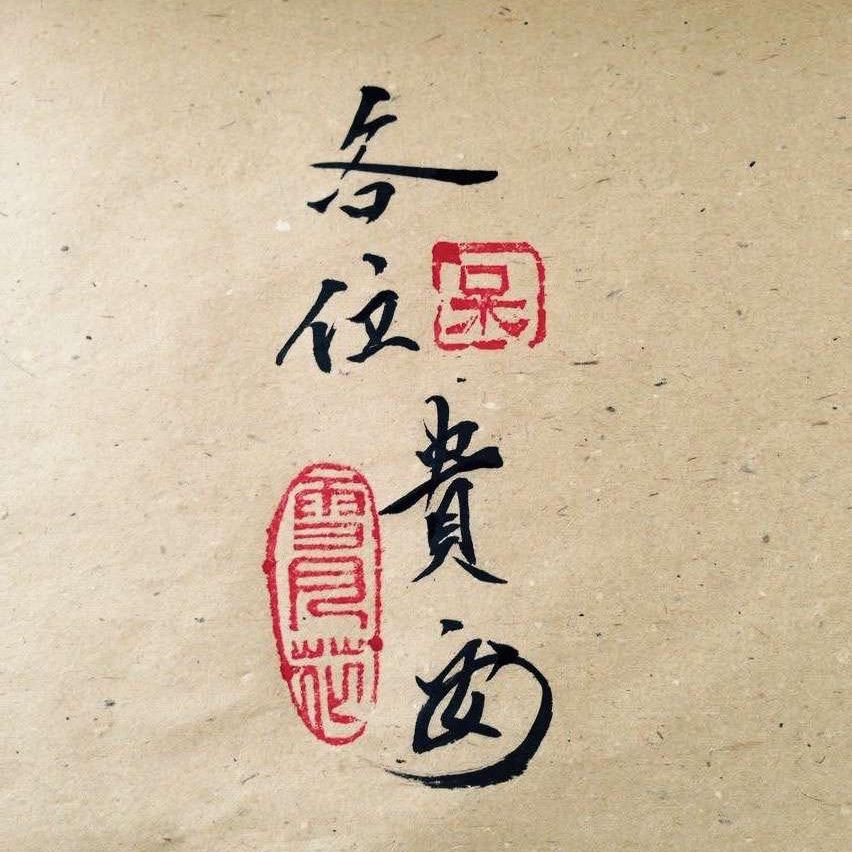 各位
呆
貴安
雪月花